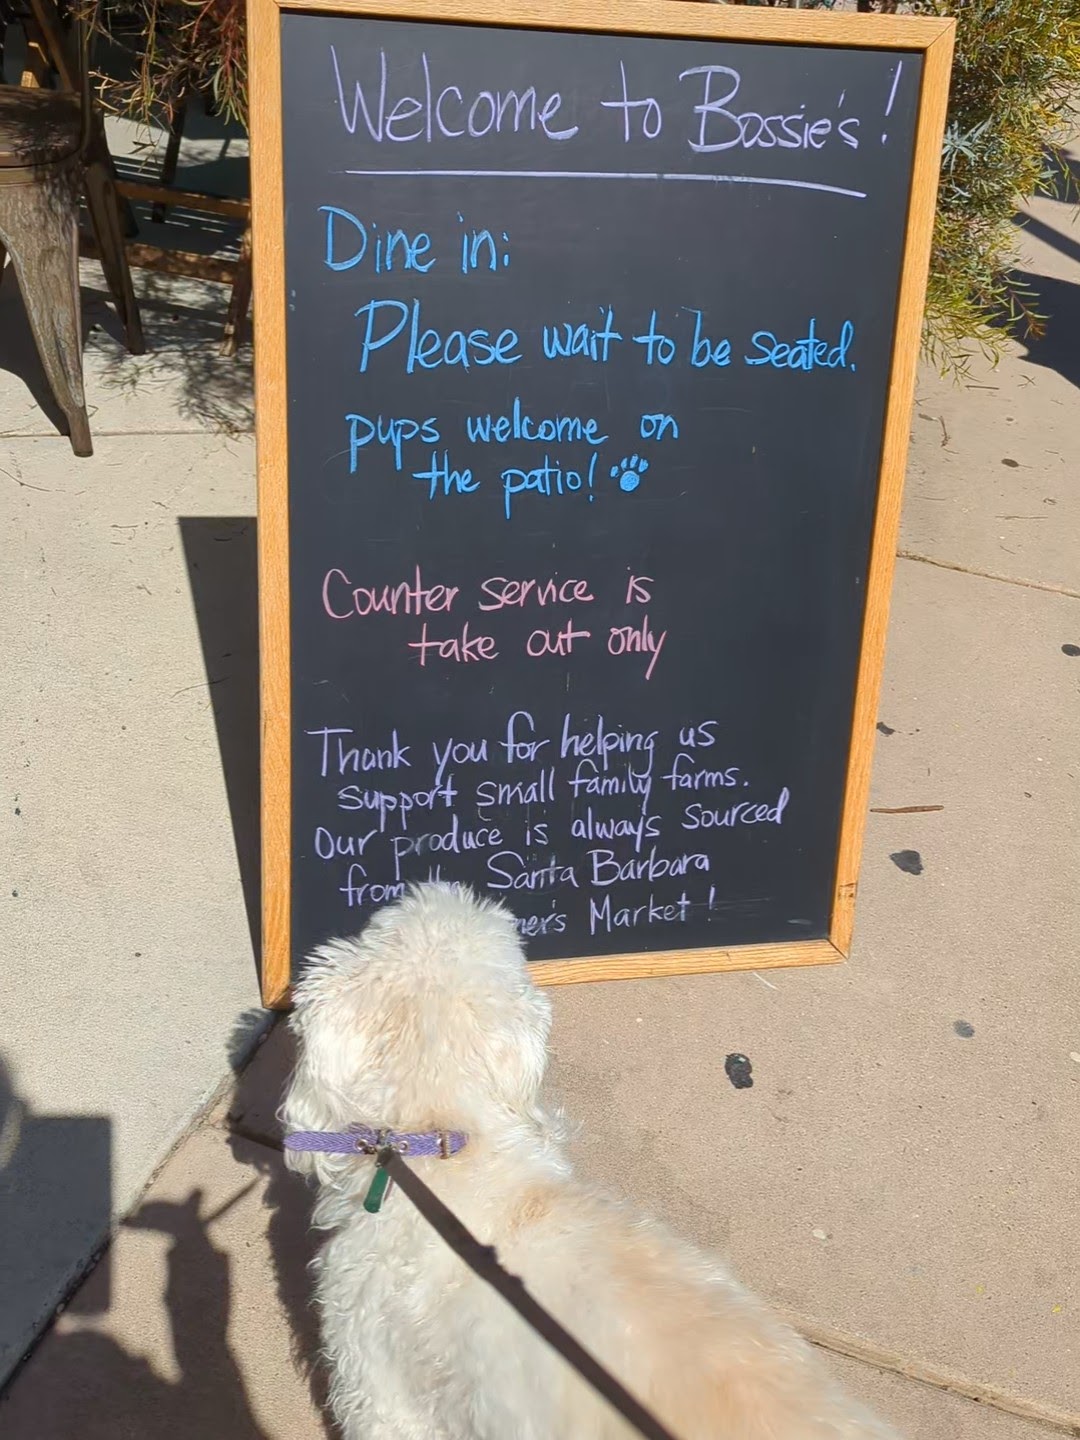 Welcome to Bossie's!
Dine in:
Please wait to be seated.
pups welcome on
the patio!
Counter service is
take out only
Thank you for helping us
support small family farms.
Our produce is always sourced
from the Santa Barbara
Market!